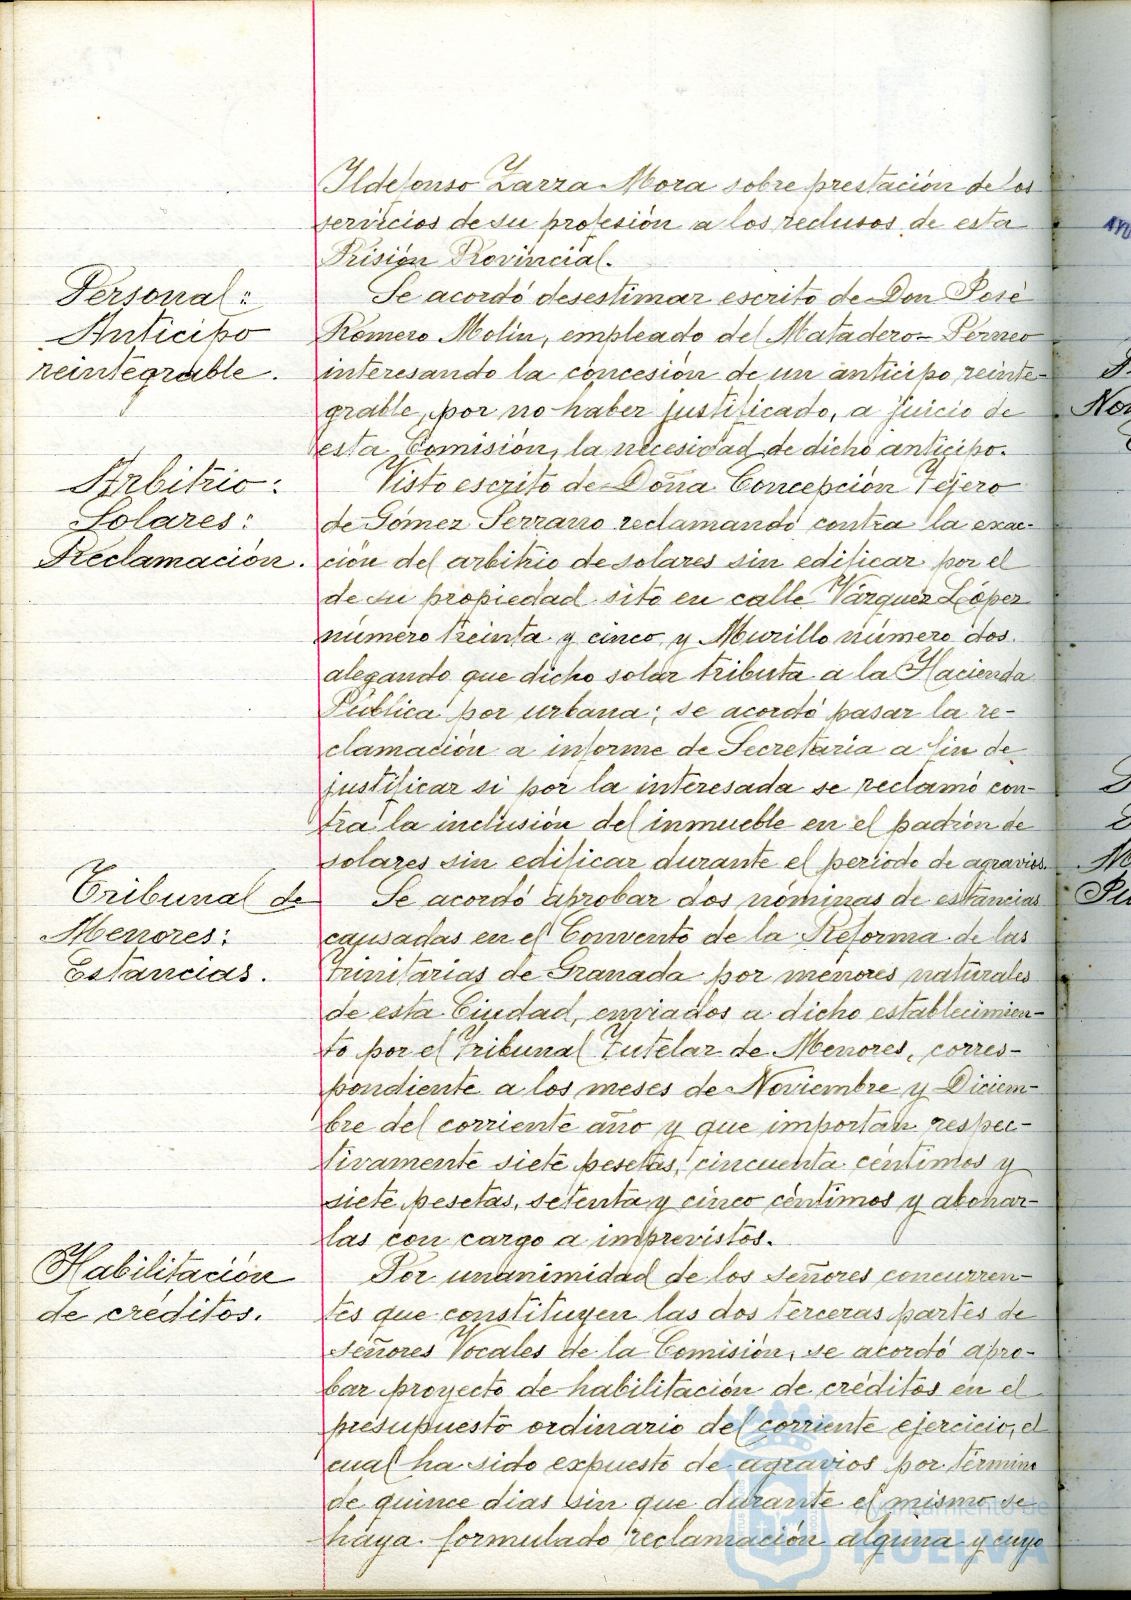 Ildefonso Zarza Mora sobre prestación de los
servicios de su profesión a los reclusos de esta
Prisión Provincial.
Personal:
Anticipo
reintegrable.
Se acordó desestimar escrito de Don José
Romero Molín, empleado del Matadero-Perneo
interesando la concesión de un anticipo reinte-
grable, por no haber justificado, a juicio de
esta Comisión, la necesidad de dicho anticipo.
Arbitrio:
Solares:
Reclamación.
Visto escrito de Doña Concepción Tejero
de Gómez Serrano reclamando contra la exac-
ción del arbitrio de solares sin edificar por el
de su propiedad sito en calle Vázquez López
número treinta y cinco y Murillo número dos
alegando que dicho solar tributa a la Hacienda
Pública por urbana; se acordó pasar la re-
clamación a informe de Secretaria a fin de
justificar si por la interesada se reclamó con-
tra la inclusión del inmueble en el padrón de
solares sin edificar durante el periodo de agravios.
Tribunal de
Menores:
Estancias.
Se acordó aprobar dos nóminas de estancias
causadas en el Convento de la Reforma de las
Trinitarias de Granada por menores naturales
de esta Ciudad, enviados a dicho establecimien-
to por el Tribunal Tutelar de Menores, corres-
pondiente a los meses de Noviembre y Diciem-
bre del corriente año y que importan respec-
tivamente siete pesetas, cincuenta céntimos y
siete pesetas, setenta y cinco céntimos y abonar-
las con cargo a imprevistos.
Habilitación
de créditos.
Por unanimidad de los señores concurren-
tes que constituyen las dos terceras partes de
señores Vocales de la Comisión, se acordó apro-
bar proyecto de habilitación de créditos en el
presupuesto ordinario del corriente ejercicio, el
cual ha sido expuesto de agravios por término
de quince dias sin que durante el mismo se
haya formulado reclamación alguna y cuyo
Ayuntamiento de
HUELVA